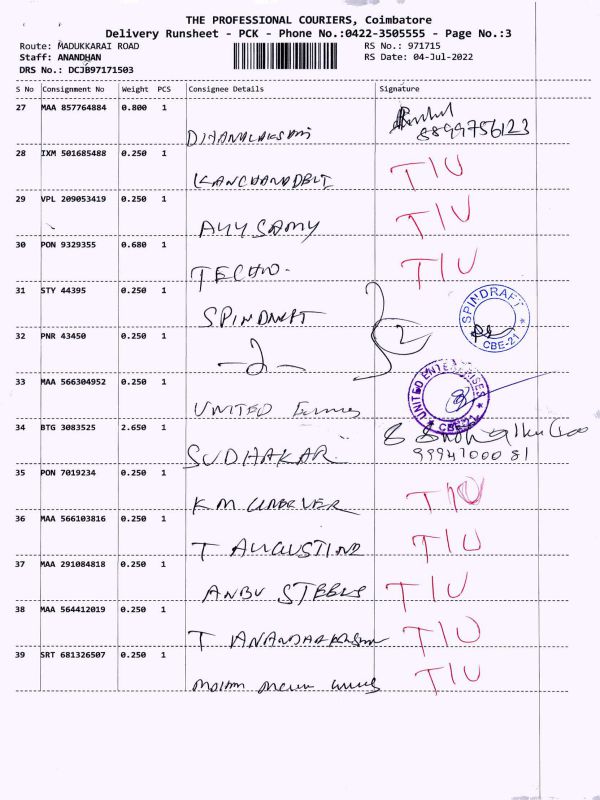 THE PROFESSIONAL COURIERS, Coimbatore
Delivery Runsheet - PCK - Phone No.:0422-3505555 - Page No.:3
Route: MADUKKARAI ROAD RS No.: 971715
Staff: ANANDHAN RS Date: 04-Jul-2022
DRS No.: DCJB97171503
S No Consignment No Weight PCS Consignee Details Signature
27 MAA 857764884 0.800 1
DHANALAKSHMI 8899756123
28 IXM 501685488 0.250 1
KANCHANADEVI T/U
29 VPL 209053419 0.250 1
AYYSAMY T/U
30 PON 9329355 0.680 1
TECHNO. T/U
31 STY 44395 0.250 1
SPINDRAFT SPINDRAFT CBE-21
32 PNR 43450 0.250 1
-2- 2
33 MAA 566304952 0.250 1
UNITED UNITED ENTERPRISES CBE-21
34 BTG 3083525 2.650 1
SUDHAKAR
35 PON 7019234 0.250 1
KM T/U
36 MAA 566103816 0.250 1
T AUGUSTINE T/U
37 MAA 291084818 0.250 1
ANBU STEELS T/U
38 MAA 564412019 0.250 1
T T/U
39 SRT 681326507 0.250 1
T/U